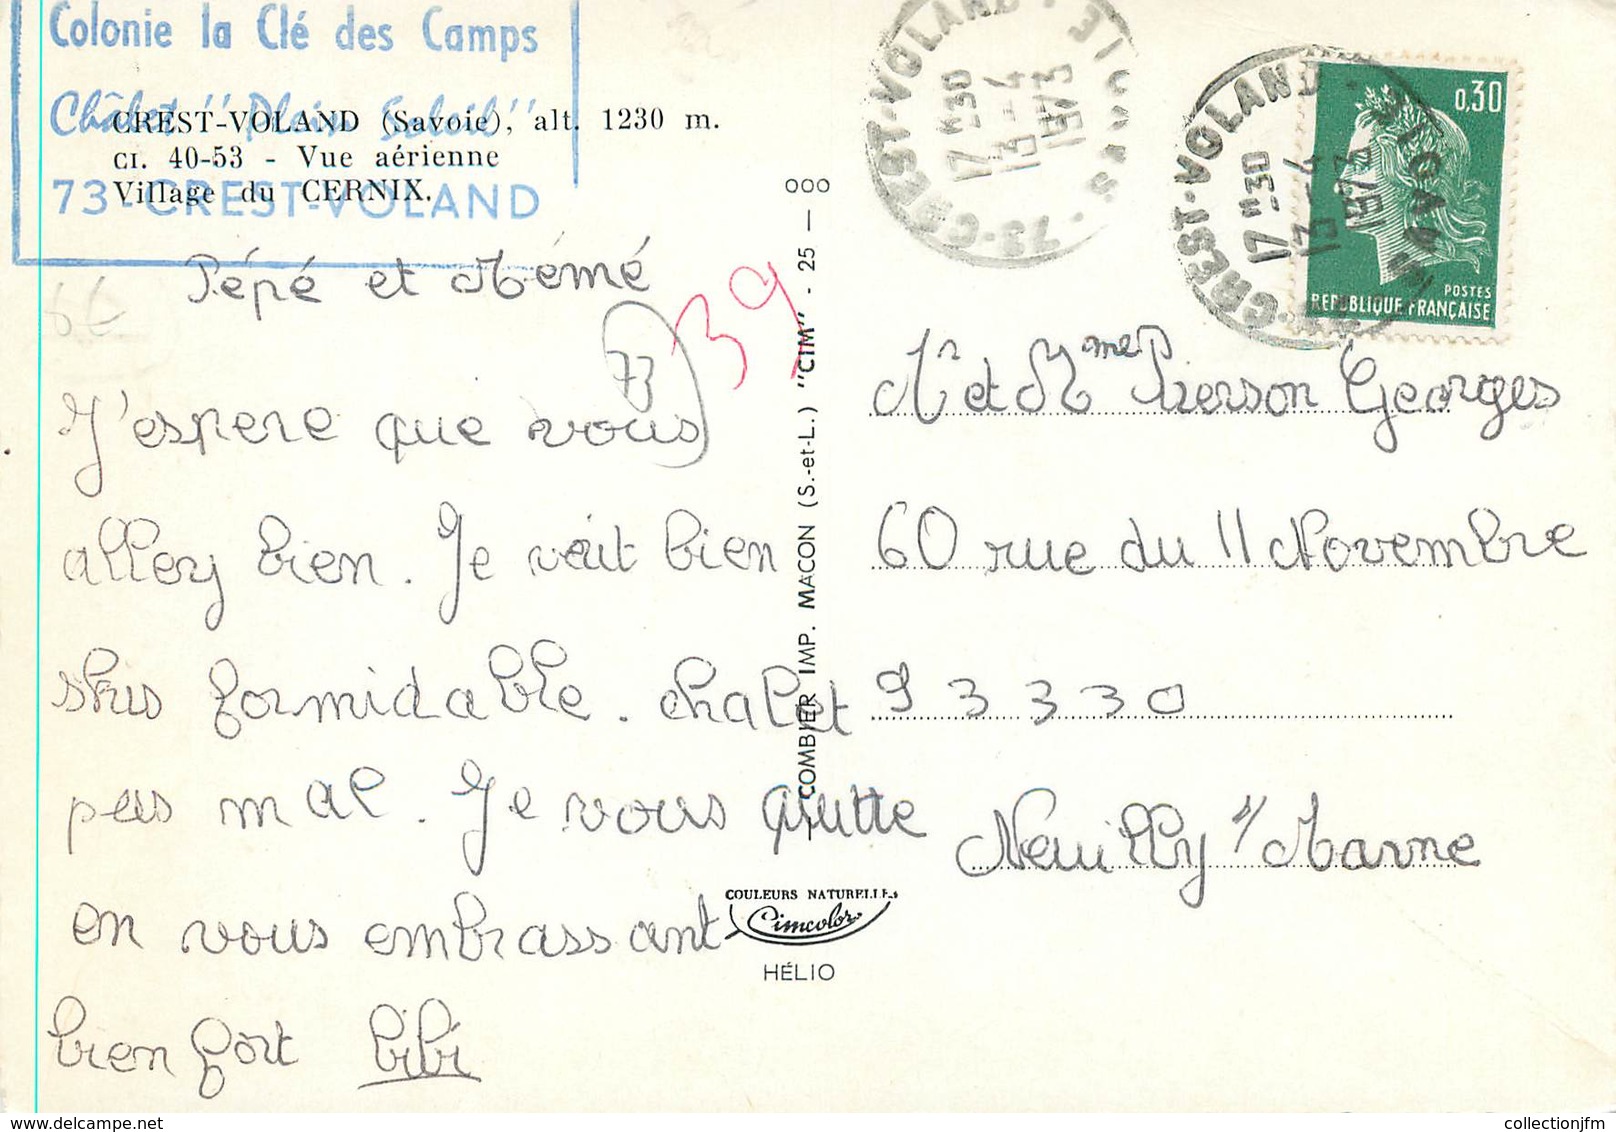 Colonie la Clé des Camps
Châlet "Plein Soleil"
73 - CREST-VOLAND
CREST-VOLAND (Savoie), alt. 1230 m.
CI. 40-53 - Vue aérienne
Village du CERNIX.
Pépé et Mémé
J'espere que vous
allery bien. Je vait bien
skis formidable. chalet
pas mal. Je vous quitte
en vous embrassant
bien fort bibi
6€
73
39
COMBIER IMP. MACON (S.-et-L.) "CIM" - 25 — 000
COULEURS NATURELLES
Cimcolor
HÉLIO
73-CREST-VOLAND · SAVOIE
17 H30
13-4
1973
73-CREST-VOLAND · SAVOIE
17 H30
13-4
1973
0,30
POSTES
REPUBLIQUE FRANÇAISE
Mr et Mme Pierson Georges
60 rue du 11 Novembre
93330
Neuilly s/ Marne
collectionjfm